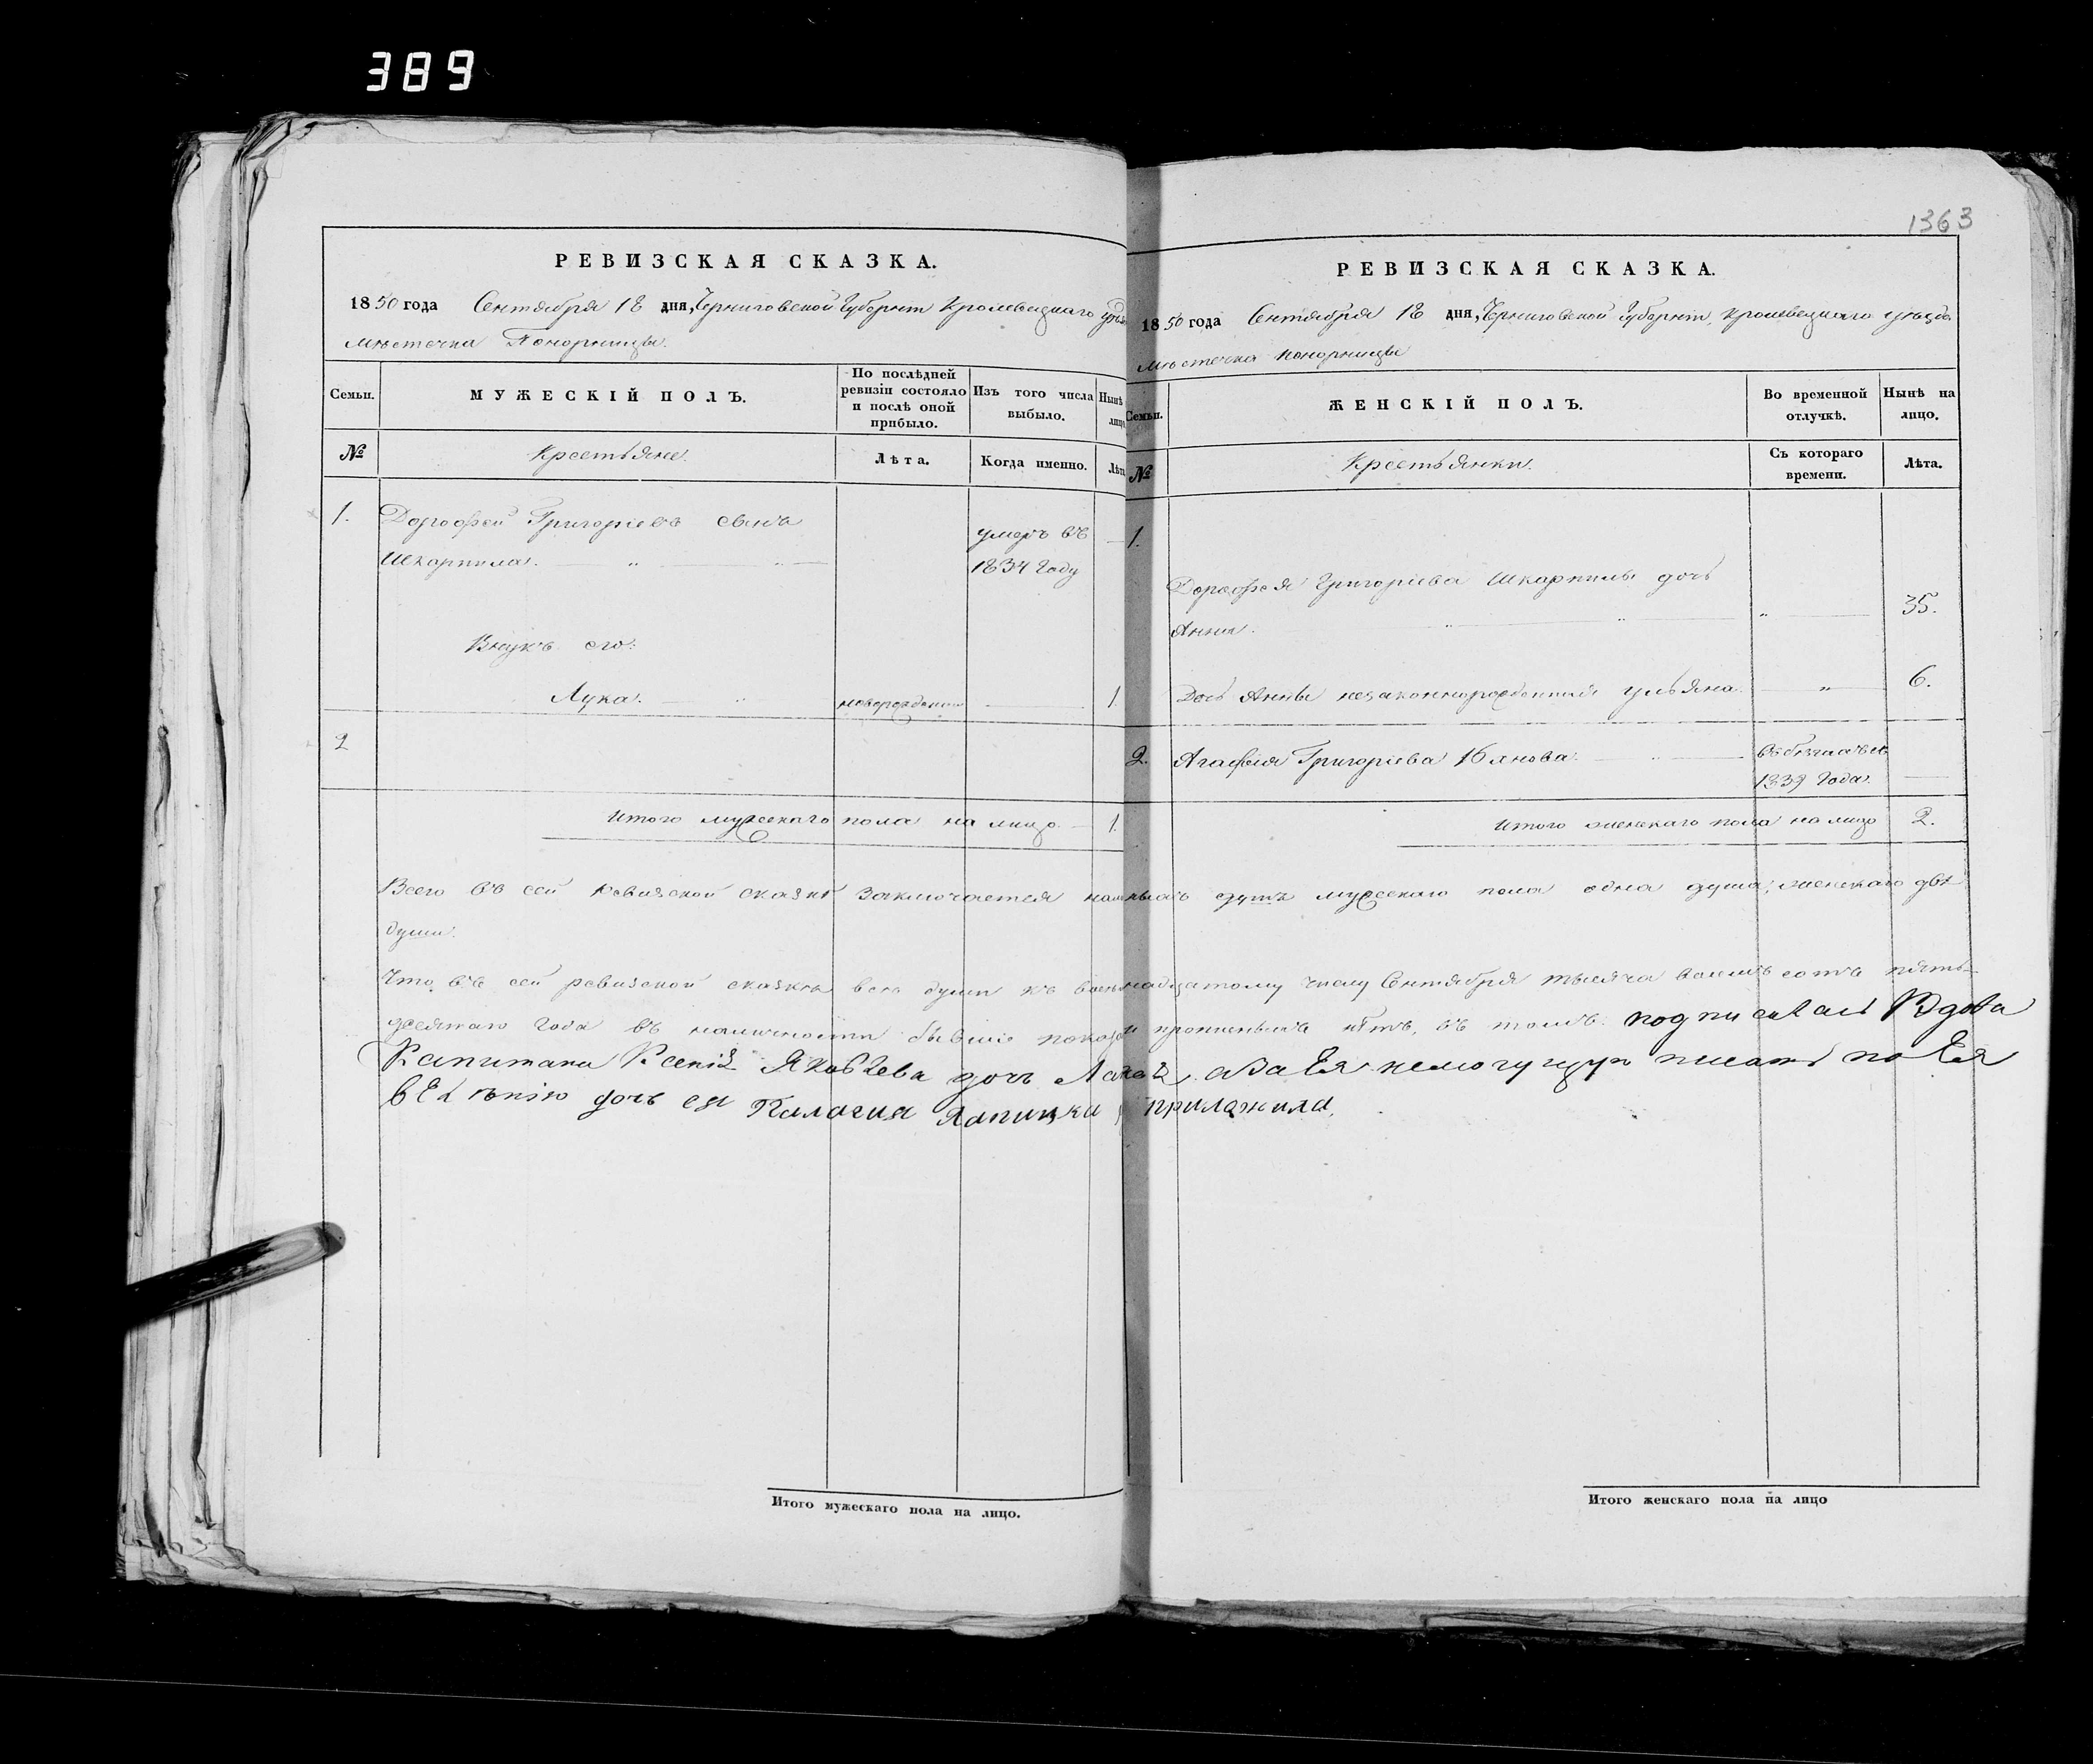 389
1363
РЕВИЗСКАЯ СКАЗКА.
1850 года Сентября 18 дня, Черниговской Губерніи Кролевецкаго уѣзда
мѣстечка Понорницы.
Семьи.
МУЖЕСКІЙ ПОЛЪ.
По послѣдней
ревизіи состояло
и послѣ оной
прибыло.
Изъ того числа
выбыло.
Нынѣ
лицо
№
Крестьяне.
Лѣта.
Когда именно.
Лѣта
1.
Дорофей Григоріевъ сынъ
Шкарпила.
умеръ въ
1834 Году
Внукъ его:
Лука.
новорожденный
1
2
Итого мужескаго пола на лицо
1.
РЕВИЗСКАЯ СКАЗКА.
1850 года Сентября 18 дня, Черниговской Губерніи, Кролевецкаго уѣзда
мѣстечка Понорницы
Семьи.
ЖЕНСКІЙ ПОЛЪ.
Во временной
отлучкѣ.
Нынѣ на
лицо.
№
Крестьянки.
Съ котораго
времени.
Лѣта.
1.
Дорофея Григоріева Шкарпилы дочь
Анна.
35.
Дочь Анны незаконнорожденная Ульяна.
6.
2.
Агафія Григоріева
въ бѣгахъ съ
1839 Года.
Итого женскаго пола на лицо
2.
Всего въ сей ревизской сказкѣ заключается душъ мужескаго пола одна душа, женскаго двѣ
души.
Что въ сей ревизской сказкѣ всѣ души къ восемнадцатому числу Сентября тысяча восемь сотъ пять-
десятаго года въ наличности бывшіе и пропущенныхъ нѣтъ, въ томъ подписалась Вдова
Капитана Ксенія Яковлева дочь а за Ея немогущую писать по Ея
велѣнію дочь ея приложила.
Итого мужескаго пола на лицо.
Итого женскаго пола на лицо